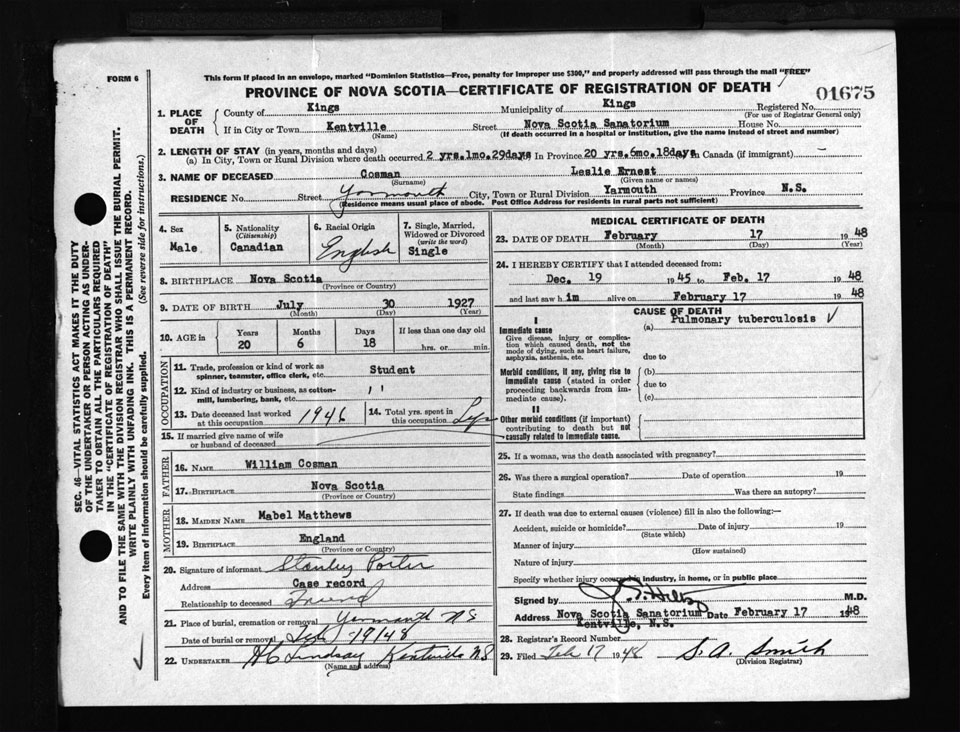 FORM 6
This form if placed in an envelope, marked "Dominion Statistics—Free, penalty for improper use $300," and properly addressed will pass through the mail "FREE"
PROVINCE OF NOVA SCOTIA—CERTIFICATE OF REGISTRATION OF DEATH
01675
1. PLACE OF DEATH
County of Kings Municipality of Kings Registered No.
(For use of Registrar General only)
If in City or Town Kentville Street Nova Scotia Sanatorium House No.
(Name) (If death occurred in a hospital or institution, give the name instead of street and number)
2. LENGTH OF STAY (in years, months and days)
(a) In City, Town or Rural Division where death occurred 2 yrs.1mo.29days In Province 20 yrs.6mo.18days in Canada (if immigrant)
3. NAME OF DECEASED Cosman Leslie Ernest
(Surname) (Given name or names)
RESIDENCE No. Street Yarmouth City, Town or Rural Division Yarmouth Province N.S.
(Residence means usual place of abode. Post Office Address for residents in rural parts not sufficient)
SEC. 46—VITAL STATISTICS ACT MAKES IT THE DUTY
OF THE UNDERTAKER OR PERSON ACTING AS UNDER-
TAKER TO OBTAIN ALL THE PARTICULARS REQUIRED
IN THE "CERTIFICATE OF REGISTRATION OF DEATH"
AND TO FILE THE SAME WITH THE DIVISION REGISTRAR WHO SHALL ISSUE THE BURIAL PERMIT.
WRITE PLAINLY WITH UNFADING INK. THIS IS A PERMANENT RECORD.
Every item of information should be carefully supplied. (See reverse side for instructions.)
4. Sex
Male
5. Nationality
(Citizenship)
Canadian
6. Racial Origin
English
7. Single, Married,
Widowed or Divorced
(write the word)
Single
8. BIRTHPLACE Nova Scotia
(Province or Country)
9. DATE OF BIRTH July 30 1927
(Month) (Day) (Year)
10. AGE in Years Months Days If less than one day old
20 6 18 hrs. or min.
OCCUPATION
11. Trade, profession or kind of work as
spinner, teamster, office clerk, etc. Student
12. Kind of industry or business, as cotton-
mill, lumbering, bank, etc. " "
13. Date deceased last worked
at this occupation 1946
14. Total yrs. spent in
this occupation
15. If married give name of wife
or husband of deceased
FATHER
16. NAME William Cosman
17. BIRTHPLACE Nova Scotia
(Province or Country)
MOTHER
18. MAIDEN NAME Mabel Matthews
19. BIRTHPLACE England
(Province or Country)
20. Signature of informant Stanley Porter
Address Case record
Relationship to deceased Friend
21. Place of burial, cremation or removal Yarmouth NS
Date of burial or removal Feb 19148
22. UNDERTAKER HC Lindsay Kentville NS
(Name and address)
MEDICAL CERTIFICATE OF DEATH
23. DATE OF DEATH February 17 1948
(Month) (Day) (Year)
24. I HEREBY CERTIFY that I attended deceased from:
Dec. 19 1945 to Feb. 17 1948
and last saw him alive on February 17 1948
CAUSE OF DEATH
I
Immediate cause (a) Pulmonary tuberculosis
Give disease, injury or complica-
tion which caused death, not the
mode of dying, such as heart failure,
asphyxia, asthenia, etc. due to
Morbid conditions, if any, giving rise to (b)
immediate cause (stated in order due to
proceeding backwards from im-
mediate cause). (c)
II
Other morbid conditions (if important)
contributing to death but not
causally related to immediate cause.
25. If a woman, was the death associated with pregnancy?
26. Was there a surgical operation? Date of operation 19
State findings Was there an autopsy?
27. If death was due to external causes (violence) fill in also the following:—
Accident, suicide or homicide? Date of injury 19
(State which)
Manner of injury
(How sustained)
Nature of injury
Specify whether injury occurred in industry, in home, or in public place
Signed by M.D.
Address Nova Scotia Sanatorium Date February 17 1948
Kentville, N.S.
28. Registrar's Record Number
29. Filed Feb 17 1948 S. A. Smith
(Division Registrar)